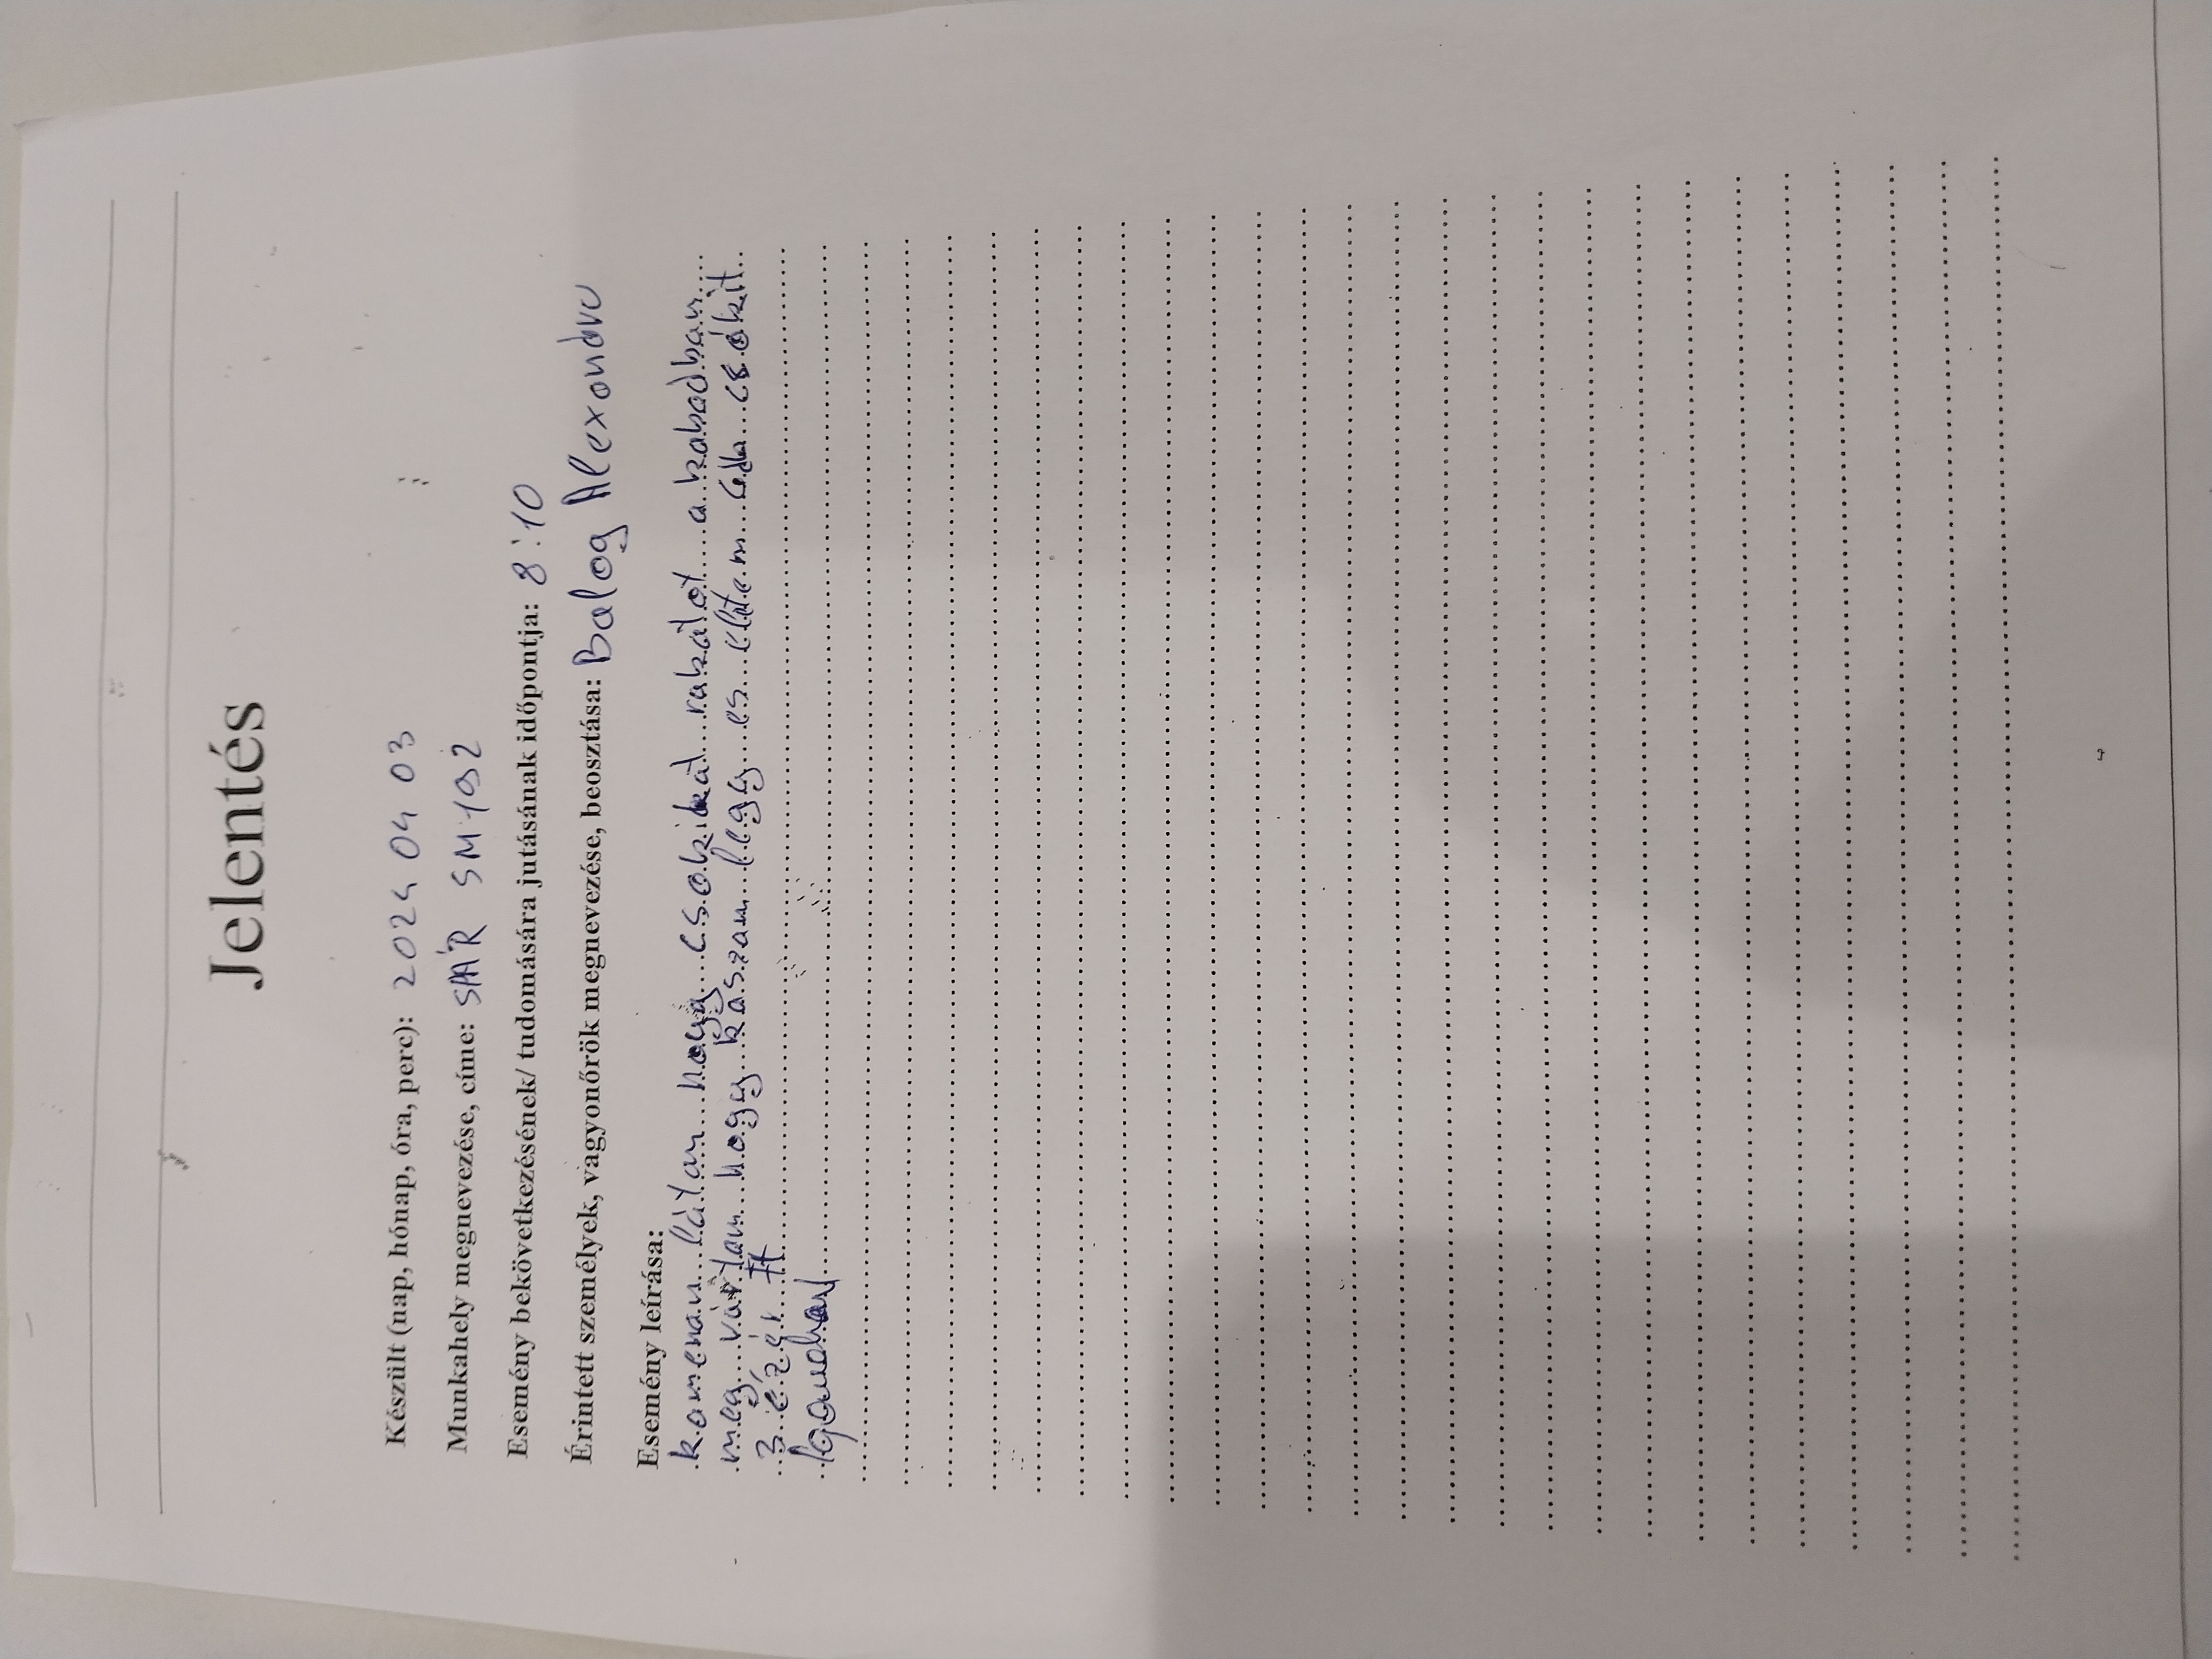 Jelentés
Készült (nap, hónap, óra, perc): 2024 04 03
Munkahely megnevezése, címe: SPÁR SM 1092
Esemény bekövetkezésének/ tudomására jutásának időpontja: 8:10
Érintett személyek, vagyonőrök megnevezése, beosztása: Balog Alexondra
Esemény leírása:
kamerán látam hogy csokikat rakatot a kabadban
meg vártam hogy kaszam legy es
3 ezér ft